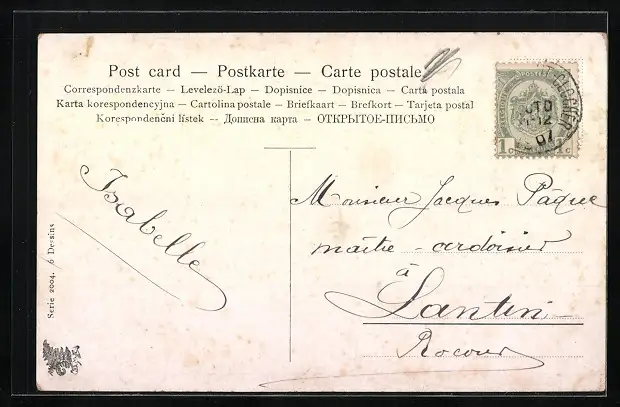 Post card — Postkarte — Carte postale
Correspondenzkarte — Levelező-Lap — Dopisnice — Dopisnica — Carta postala
Karta korespondencyjna — Cartolina postale — Briefkaart — Brefkort — Tarjeta postal
Korespondenční lístek — Дописна карта — ОТКРЫТОЕ-ПИСЬМО
1 c
07
Isabelle
Monsieur Jacques Paque
maître - ardoisier
à
Lantin
Rocour
Serie 2004. 6 Dessins